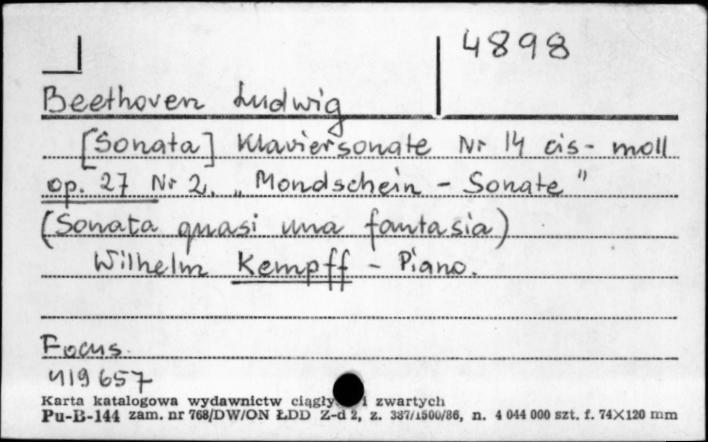 4898
Beethoven Ludwig
[Sonata] Klaviersonate Nr 14 cis-moll
op. 27 Nr 2. „Mondschein - Sonate"
(Sonata quasi una fantasia)
Wilhelm Kempff - Piano.
Focus.
419657
Karta katalogowa wydawnictw ciągły i zwartych
Pu-B-144 zam. nr 768/DW/ON ŁDD Z-d 2, z. 387/1500/86, n. 4 044 000 szt. f. 74×120 mm